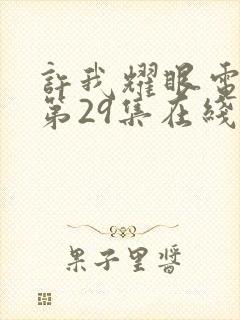 許我耀眼電
第29集在綫
果子里醬